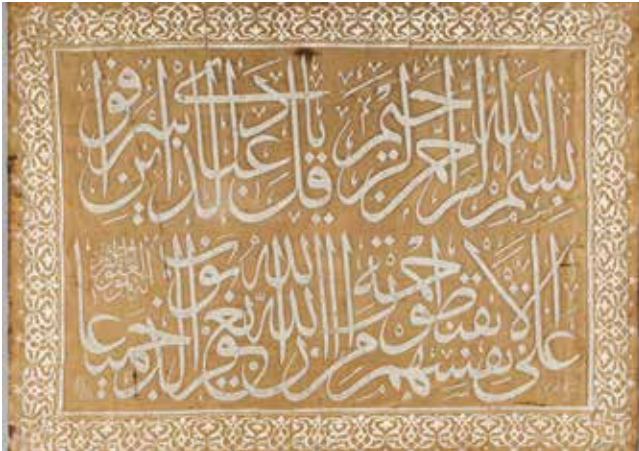 بسم الله الرحمن الرحيم قل يا عبادي الذين اسرفوا
على انفسهم لا تقنطوا من رحمة الله ان الله يغفر الذنوب جميعا